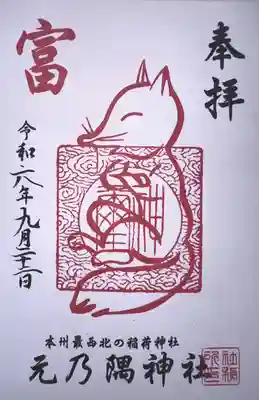 奉拝
富
令和六年九月
本州最西北の稲荷神社
元乃隅神社